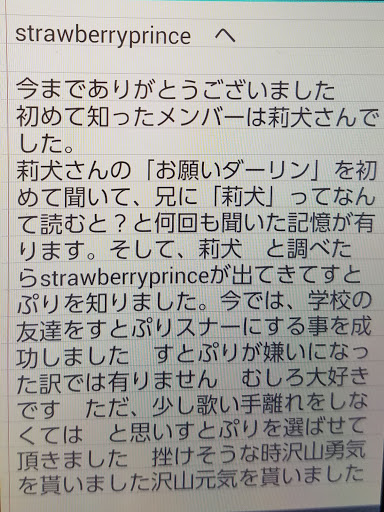 strawberryprince　へ
今までありがとうございました
初めて知ったメンバーは莉犬さんで
した。
莉犬さんの「お願いダーリン」を初
めて聞いて、兄に「莉犬」ってなん
て読むと？と何回も聞いた記憶が有
ります。そして、莉犬　と調べた
らstrawberryprinceが出てきてすと
ぷりを知りました。今では、学校の
友達をすとぷりスナーにする事を成
功しました　すとぷりが嫌いになっ
た訳では有りません　むしろ大好き
です　ただ、少し歌い手離れをしな
くては　と思いすとぷりを選ばせて
頂きました　挫けそうな時沢山勇気
を貰いました沢山元気を貰いました